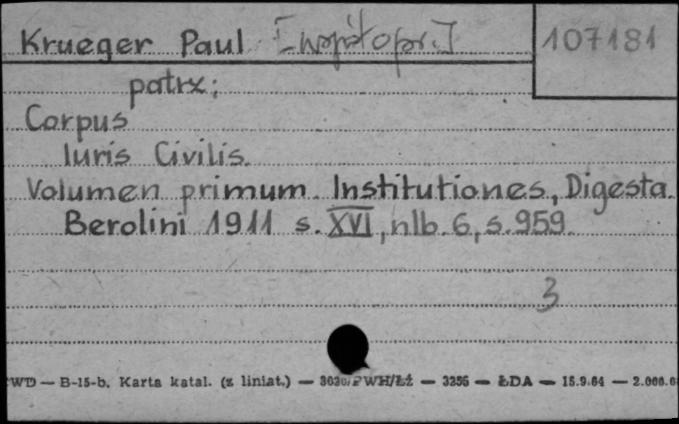 Krueger Paul [współopr.] 107181
patrz:
Corpus
Iuris Civilis.
Volumen primum Institutiones, Digesta.
Berolini 1911 s. XVI, nlb. 6, s. 959.
3
CWD — B-15-b. Karta katal. (z liniat.) — 3030/PWH/Łź — 3256 — ŁDA — 15.9.64 — 2.000.0